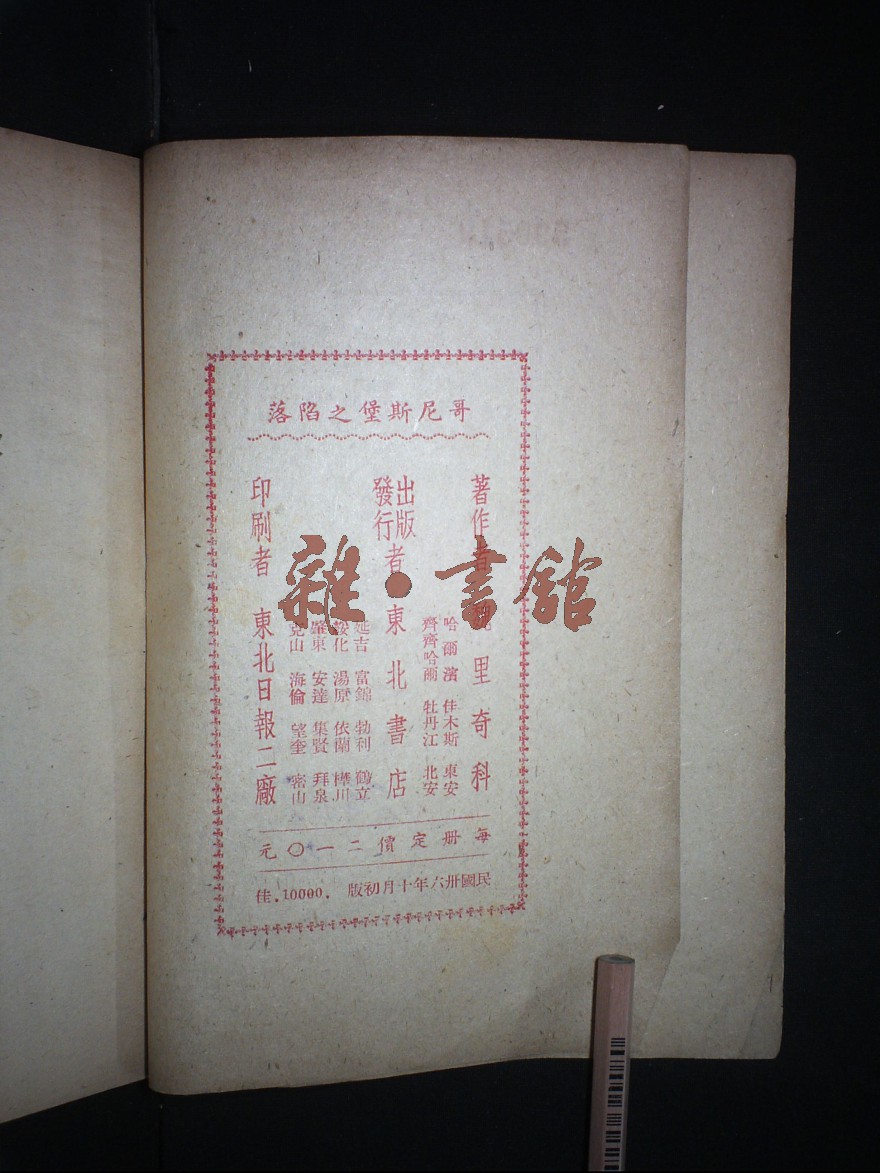 哥尼斯堡之陷落
著作者 里奇科
哈爾濱 佳木斯 東安
齊齊哈爾 牡丹江 北安
出版
發行者 東北書店
延吉 富錦 勃利 鶴立
綏化 湯原 依蘭 樺川
肇東 安達 集賢 拜泉
克山 海倫 望奎 密山
印刷者 東北日報二廠
每册定價二一〇元
民國卅六年十月初版. 10000. 佳
雜·書館